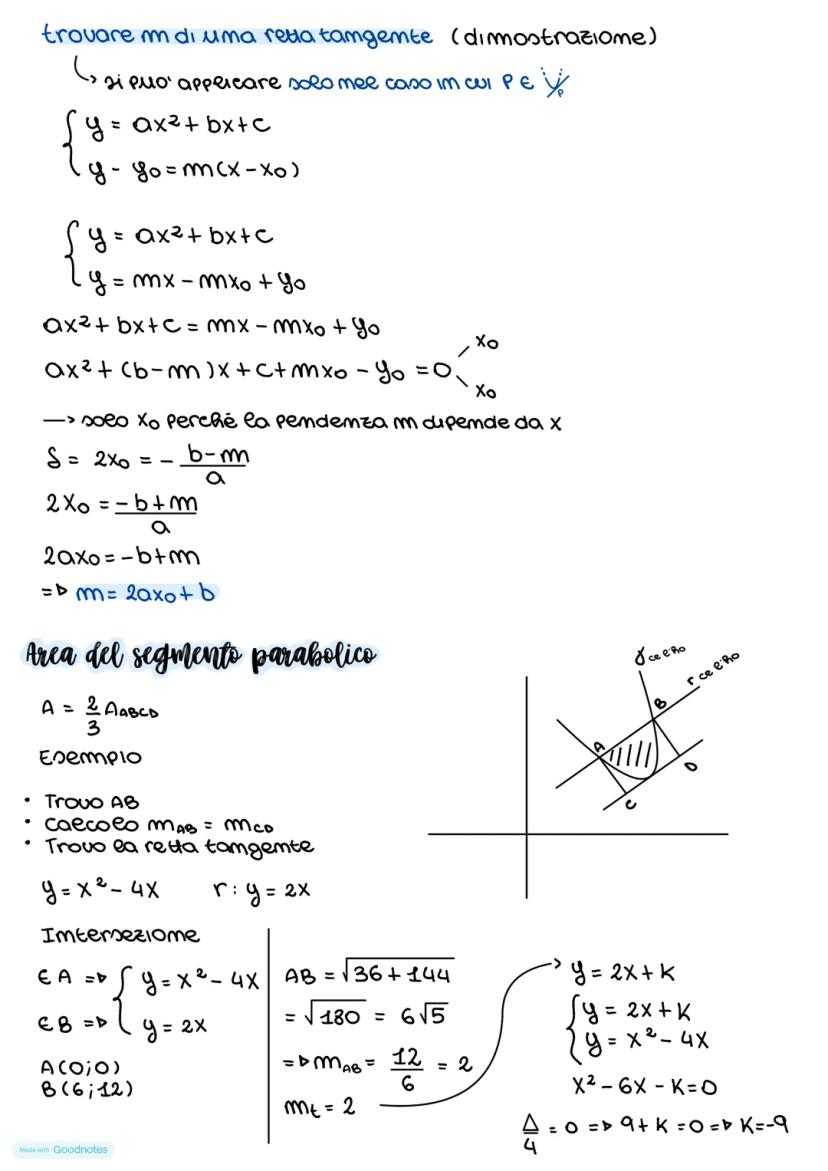 trovare m di una retta tangente (dimostrazione)
↳ si può applicare solo nel caso in cui P ∈ γ
P
{ y = ax² + bx + c
y - y₀ = m(x - x₀)
{ y = ax² + bx + c
y = mx - mx₀ + y₀
ax² + bx + c = mx - mx₀ + y₀
ax² + (b-m)x + c + mx₀ - y₀ = 0
x₀
x₀
—> solo x₀ perché la pendenza m dipende da x
S = 2x₀ = - (b-m)/a
2x₀ = (-b+m)/a
2ax₀ = -b+m
=> m = 2ax₀ + b
Area del segmento parabolico
A = 2/3 AABCD
Esempio
• Trovo AB
• calcolo mAB = mCD
• Trovo la retta tangente
y = x² - 4x r: y = 2x
γ cellᵃ₀
r cellᵃ₀
A
B
C
D
Intersezione
∈ A => { y = x² - 4x
∈ B => y = 2x
A(0;0)
B(6;12)
AB = √36 + 144
= √180 = 6√5
=> mAB = 12/6 = 2
mt = 2
y = 2x + k
{ y = 2x + k
y = x² - 4x
x² - 6x - k = 0
Δ/4 = 0 => 9 + k = 0 => k = -9
Made with Goodnotes